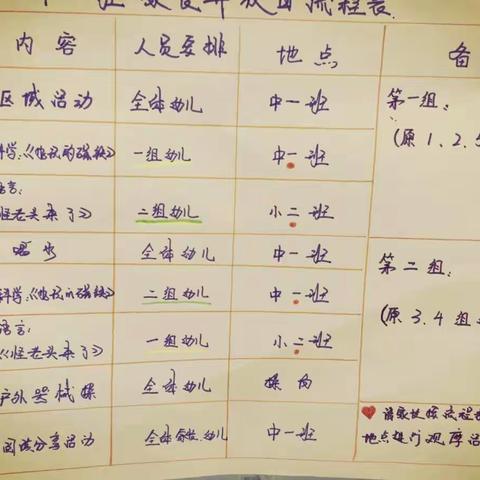 放日流程表
内容 人员安排 地点 备
区域活动 全体幼儿 中一班 第一组：
(原1、2、5
一组幼儿 中一班
语言：
怪老头来了》 二组幼儿 小二班
喝水 全体幼儿 中一班 第二组：
二组幼儿 中一班 (原3.4组
语言：
《怪老头来了》 一组幼儿 小二班
户外器械操 全体幼儿 操
阅读分享活动 全体家长、幼儿 中一班
请家长按流程
地点进行观摩活